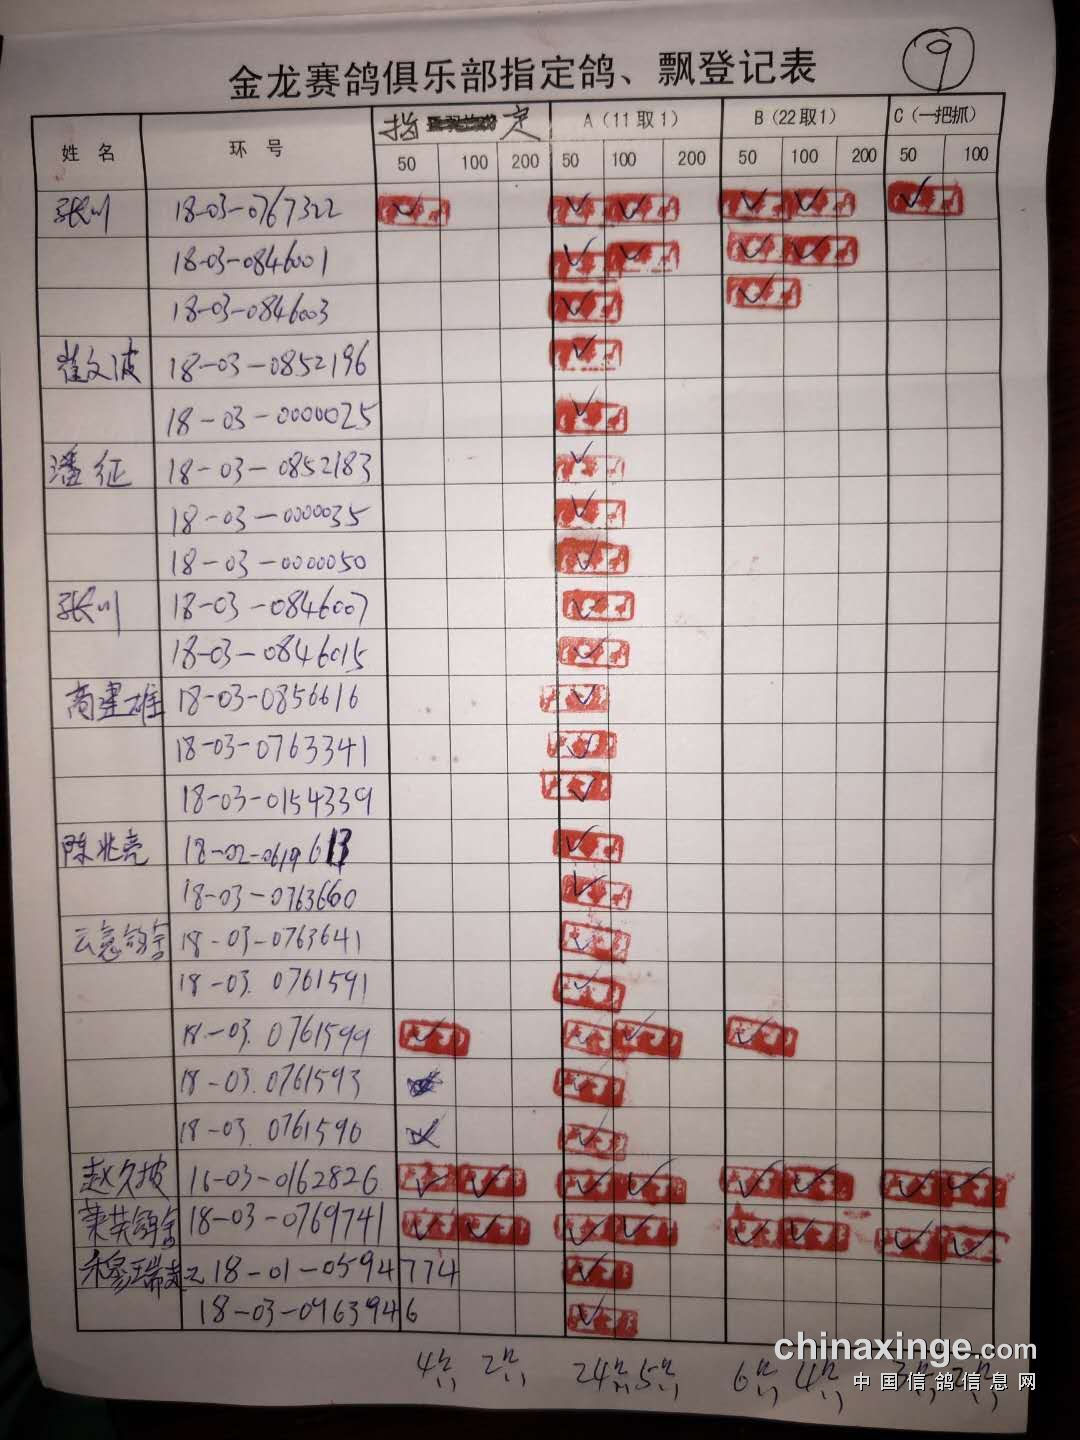 9
金龙赛鸽俱乐部指定鸽、飘登记表
姓 名 环 号 指 定 A(11取1) B(22取1) C(一把抓)
50 100 200 50 100 200 50 100 200 50 100
张川 18-03-0767322
18-03-0846001
18-03-0846003
崔文波 18-03-0852196
18-03-0000025
潘征 18-03-0852183
18-03-0000035
18-03-0000050
张川 18-03-0846007
18-03-0846015
商建雄 18-03-0856616
18-03-0763341
18-03-0154339
陈兆亮 18-02-0619613
18-03-0763660
18-03-0763641
18-03.0761591
18-03.0761599
18-03.0761593
18-03.0761590
赵久披 16-03-0162826
莱芙鸽舍 18-03-0769741
穆瑞 18-01-0594774
18-03-0963946
4 2 24 5 6 4 3 2
chinaxinge.com
中国信鸽信息网